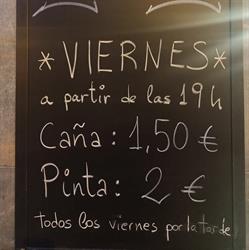 *VIERNES*
a partir de las 19h
Caña: 1,50 €
Pinta: 2 €
todos los viernes por la tarde